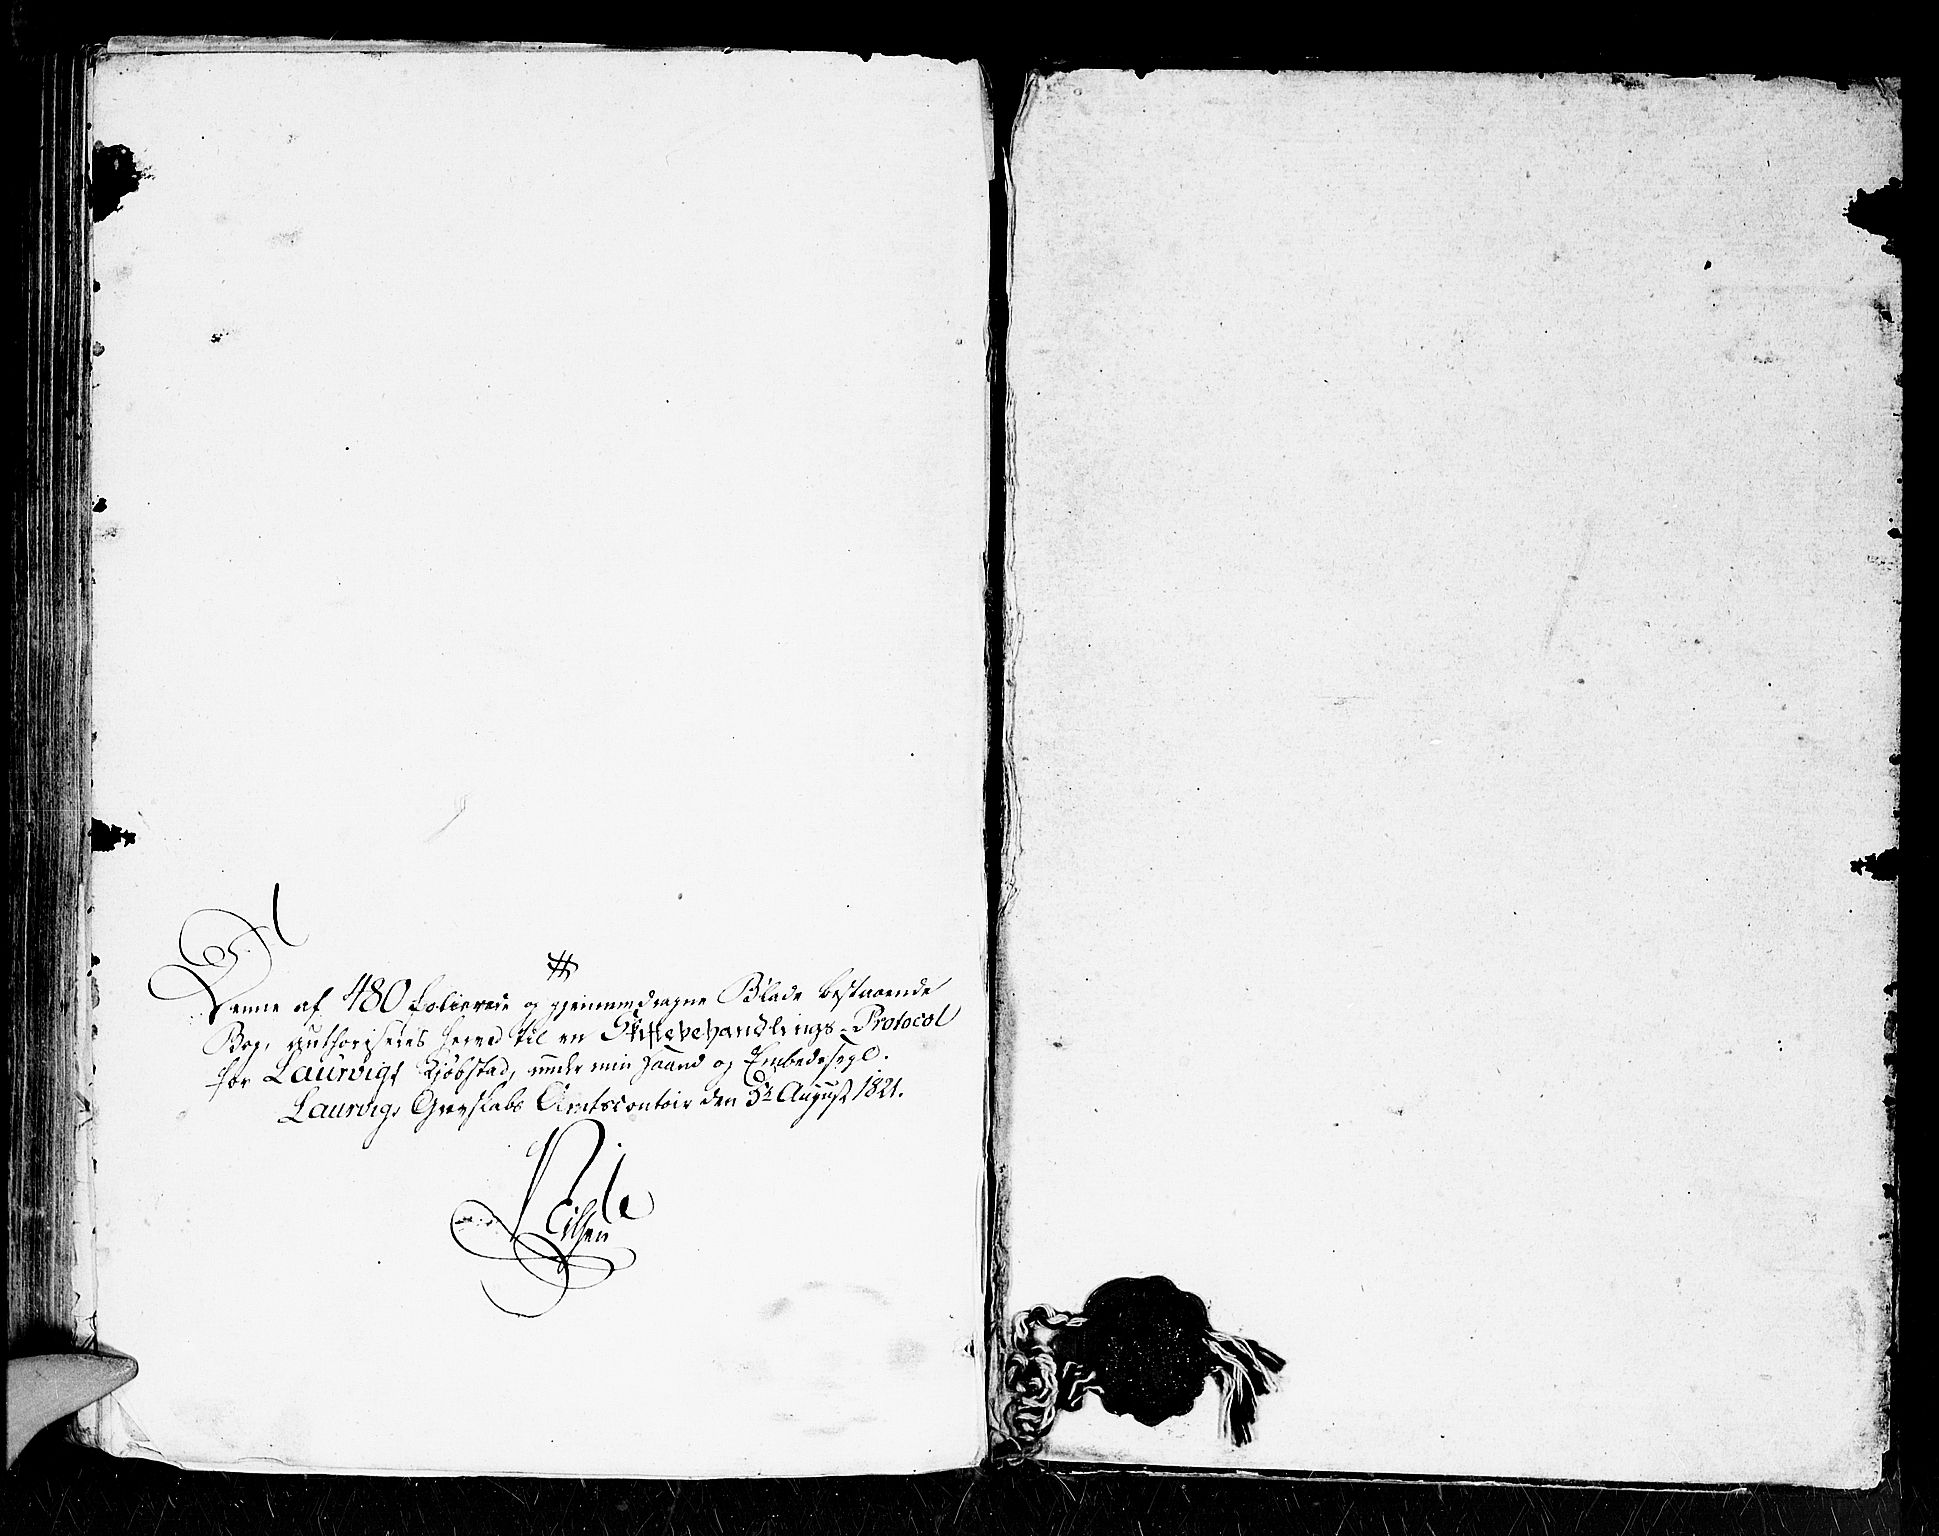 #
Denne af 480 folierede og gjennemdragne Blade bestaaende
Bog, authoriseres herved til en Skiftebehandlings-Protocol
for Laurvigs Kjøbstad, under min Haand og Embedssegl.
Laurvigs Grevskabs Amtscontoir den 3de August 1821.